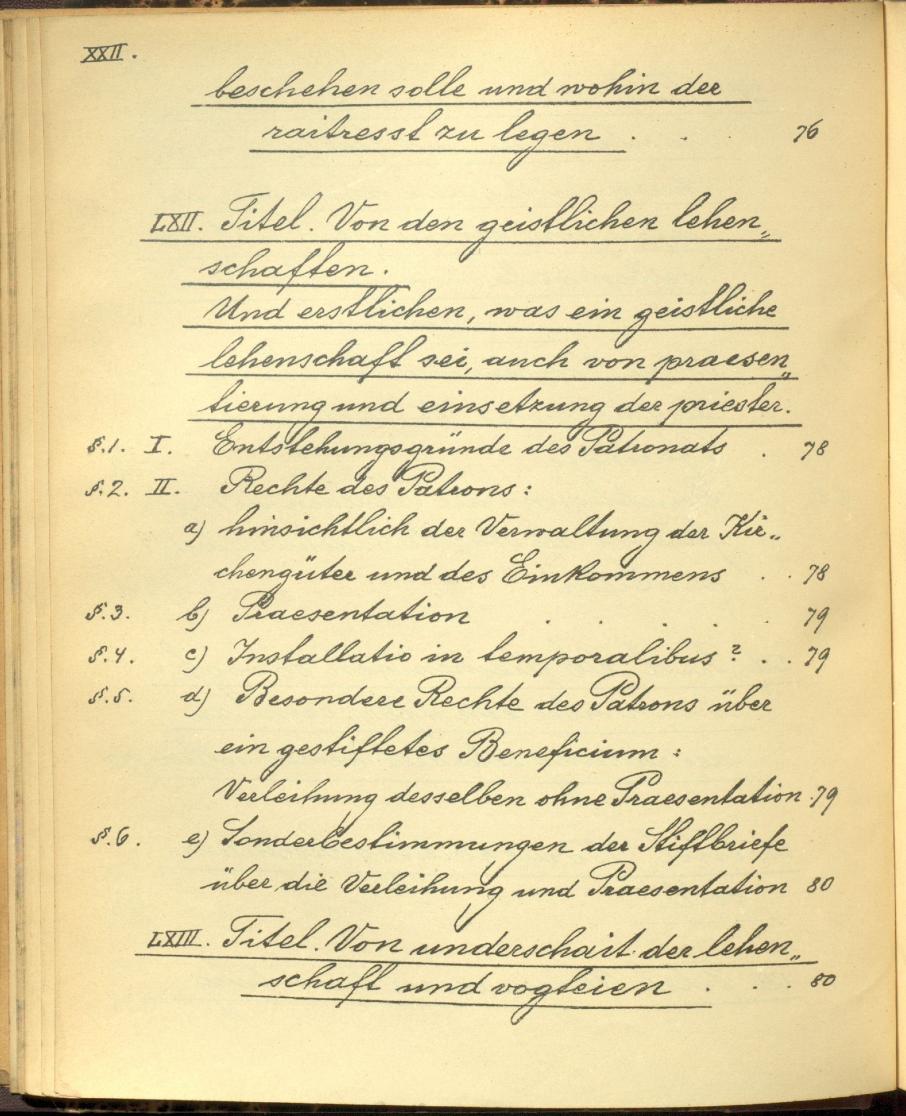 XXII.
beschehen solle und wohin der
raitresst zu legen . . . 76
LXII. Titel. Von den geistlichen lehen„
schaften.
Und erstlichen, was ein geistliche
lehenschaft sei, auch von praesen„
tierung und einsetzung der priester.
§.1. I. Entstehungsgründe des Patronats . 78
§.2. II. Rechte des Patrons:
a) hinsichtlich der Verwaltung der Kir„
chengüter und des Einkommens . . 78
§.3. b) Praesentation . . . . . 79
§.4. c) Installatio in temporalibus? . . 79
§.5. d) Besondere Rechte des Patrons über
ein gestiftetes Beneficium:
Verleihung desselben ohne Praesentation . 79
§.6. e) Sonderbestimmungen der Stiftbriefe
über die Verleihung und Praesentation 80
LXIII. Titel. Von underschait der lehen„
schaft und vogteien . . . 80